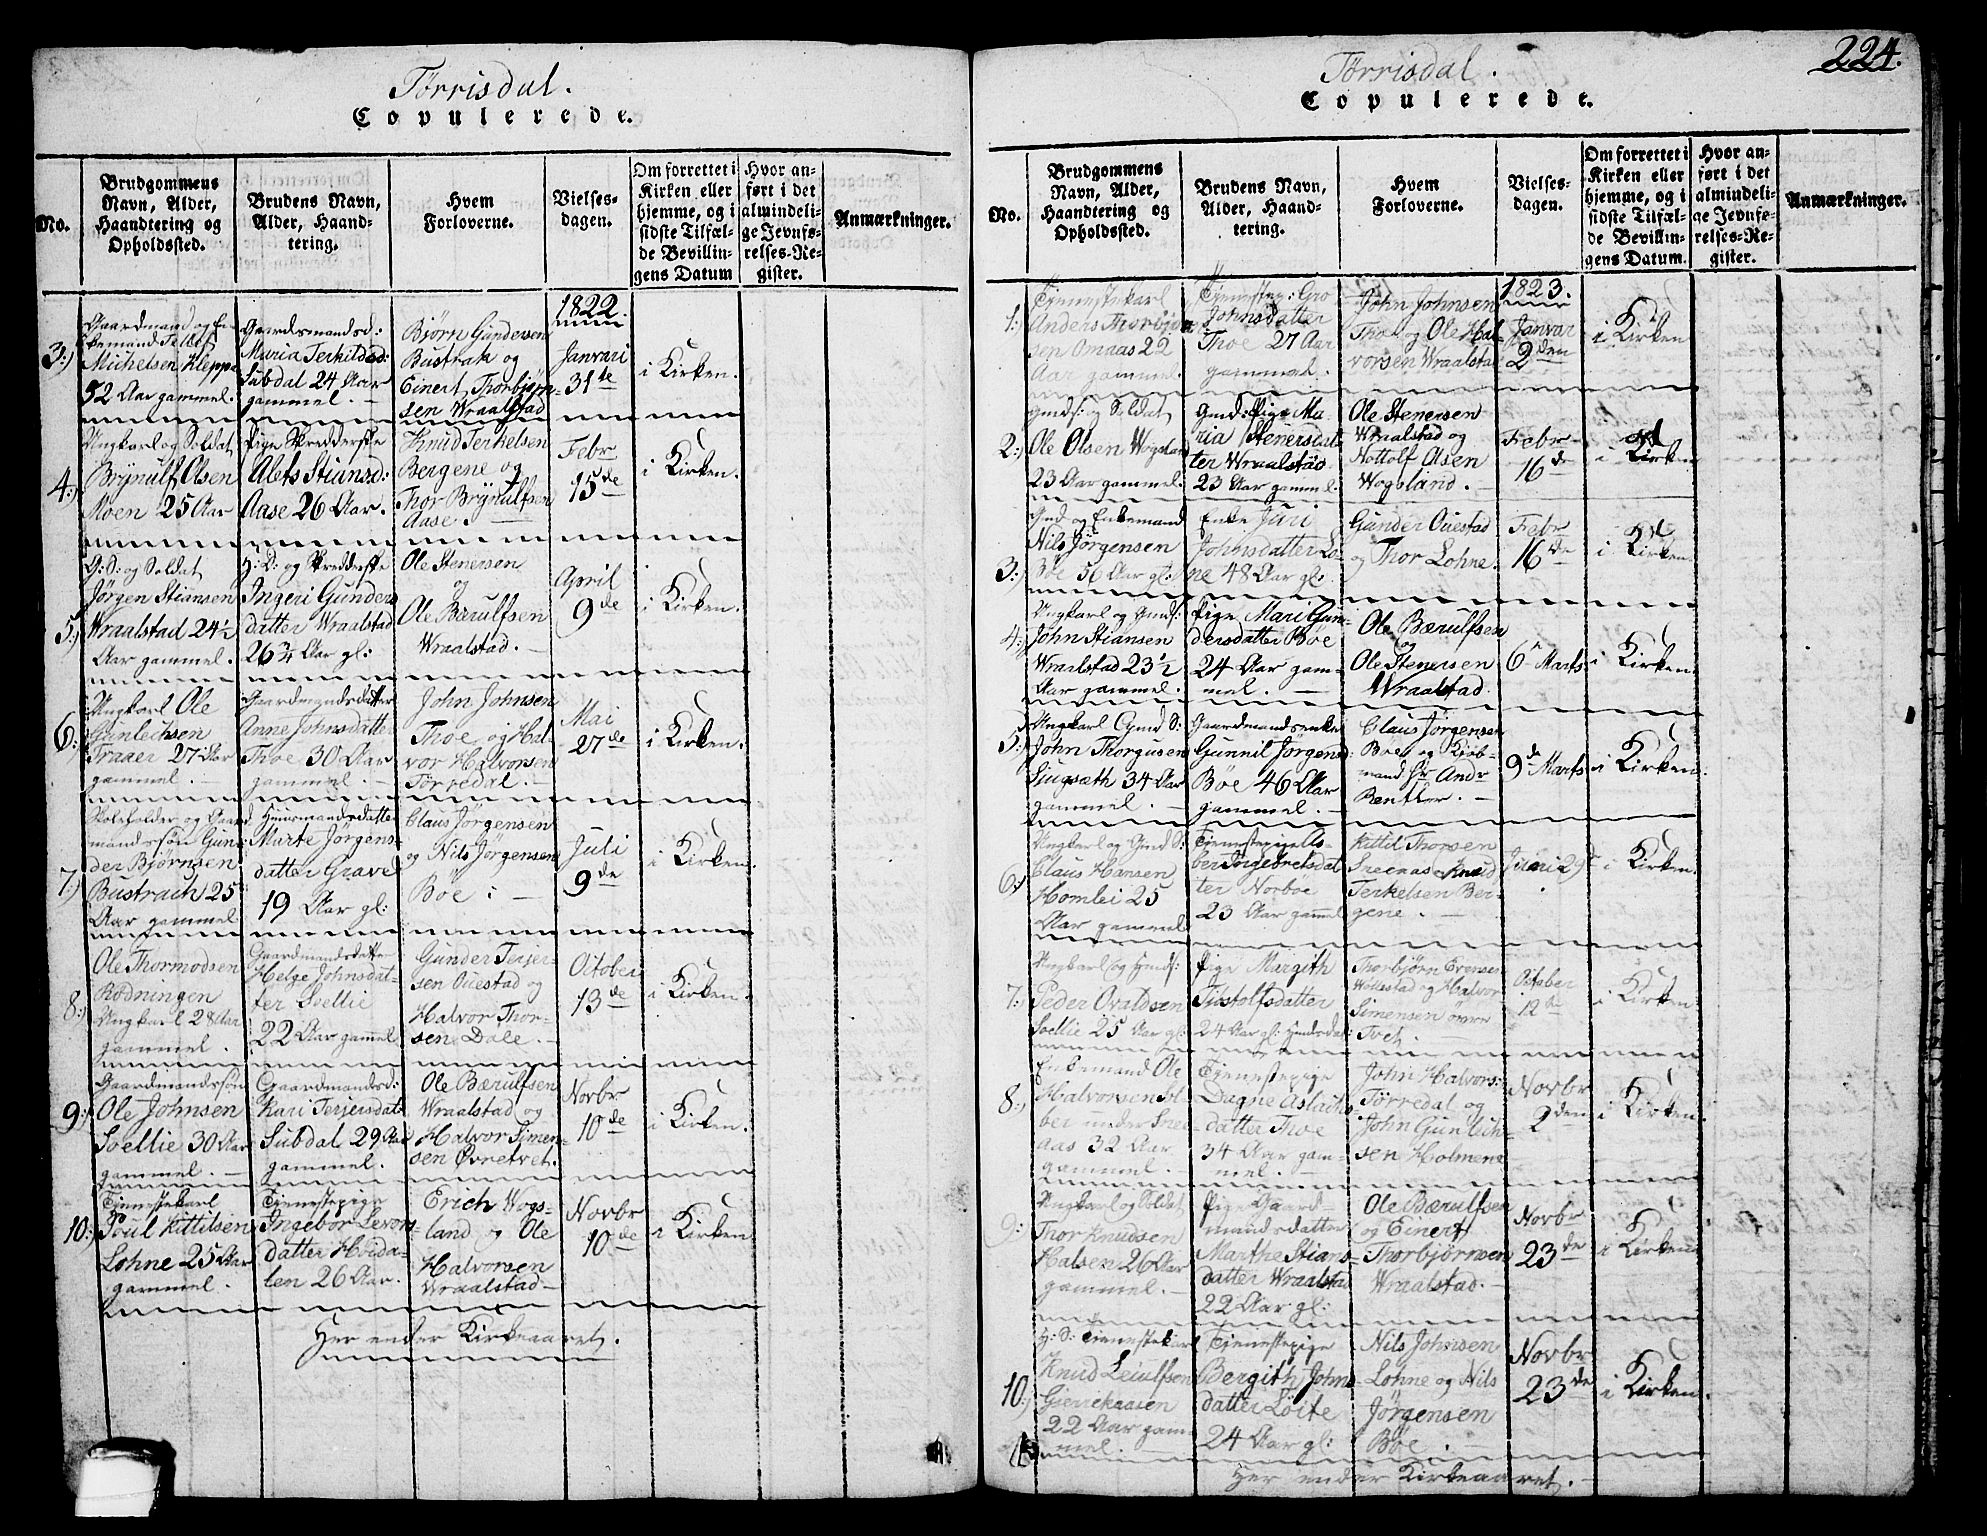 Tørrisdal.
Copulerede.
No.
Brudgommens
Navn, Alder,
Haandtering og
Opholdssted.
Brudens Navn,
Alder, Haand-
tering.
Hvem
Forloverne.
Vielses-
dagen.
Om forrettet i
Kirken eller
hjemme, og i
sidste Tilfæl-
de Bevillin-
gens Datum
Hvor an-
ført i det
almindeli-
ge Jevnfø-
relses-Re-
gister.
Anmærkninger.
1822.
3:)
Gaardmand og En-
kemand Tellef
Michelsen Kleppe
52 Aar gammel.
Gaardsmandsd:
Maria Terkildsd:
Subdal 24 Aar
gammel. –
Bjørn Gundersen
Bustrak og
Einert Thorbjørn-
sen Wraalstad
Janvari
31te
i Kirken.
4:)
Ungkarl og Soldat
Brynulf Olsen
Moen 25 Aar
Pige Skredderske
Alets Stiansd:
Aase 26 Aar.
Knud Terkelsen
Bergene og
Thor Brynulfsen
Aase. –
Febr
15de
i Kirken.
5:)
G: S: og Soldat
Jørgen Stiansen
Wraalstad 24½
Aar gammel.
H: D: og Skredderske
Ingeri Gunders
datter Wraalstad
26¾ Aar gl:
Ole Stenersen
og
Ole Bærulfsen
Wraalstad. –
April
9de
i Kirken.
6:)
Ungkarl Ole
Gunlechsen
Traaer 27 Aar
gammel –
Gaardmandsdatter
Anne Johnsdatter
Thoe 30 Aar
gammel –
John Johnsen
Thoe og Hal-
vor Halvorsen
Tørredal. –
Mai
27de
i Kirken.
7:)
Skoleholder og Gaard
mandssøn Gun-
der Bjørnsen
Bustrach 25
Aar gammel
Huusmandsdatter
Marte Jørgens-
datter Grave
19 Aar gl:
Claus Jørgensen
og Nils Jørgensen
Böe: –
Juli
9de
i Kirken.
8:)
Ole Thormodsen
Rødningen
Ungkarl 28 Aar
gammel.
Gaardmandsdatter
Helge Johnsdat-
ter Soellie
22 Aar gammel
Gunder Terjer-
sen Ouestad og
Halvor Thor-
sen Dale. –
October
13de
i Kirken.
9:)
Gaardmandssøn
Ole Johnsen
Soellie 30 Aar
gammel. –
Gaardmandsd:
Kari Terjersdat:
Subdal 29 Aar
gammel.
Ole Bærulfsen
Wraalstad og
Halvor Simen-
sen Øvretvet.
Novbr
10de
i Kirken.
10:)
Tjenestekarl
Poul Kittilsen
Lohne 25 Aar
gammel.
Tjenestepige
Ingebor Levors
datter Høida-
len 26 Aar.
Erich Wogs-
land og Ole
Halvorsen
Wraalstad –
Novbr
10de
i Kirken
Her ender Kirkeaaret.
224.
Tørrisdal.
Copulerede.
No.
Brudgommens
Navn, Alder,
Haandtering og
Opholdssted.
Brudens Navn,
Alder, Haand-
tering.
Hvem
Forloverne.
Vielses-
dagen.
Om forrettet i
Kirken eller
hjemme, og i
sidste Tilfæl-
de Bevillin-
gens Datum.
Hvor an-
ført i det
almindeli-
ge Jevnfø-
relses-Re-
gister.
Anmærkninger.
1823.
1:)
Tjenestekarl
Anders Thorbjørn
sen Omaas 22
Aar gammel.
Tjenestep: Gro
Johnsdatter
Thoe 27 Aar
gammel.
John Johnsen
Thoe og Ole Hal-
vorsen Wraalstad
Janvar
2den
i Kirken
2:)
Gmds: og Soldat
Ole Olsen Wogsland
23 Aar gammel.
Gmd: Pige Ma-
ria Stenersdat-
ter Wraalstad
23 Aar gammel.
Ole Stenersen
Wraalstad og
Nottolf Olsen
Wogsland.
Febr
16de
i Kirken
3:)
Gmd og Enkemand
Nils Jørgensen
Böe 56 Aar gl:
Enke Juri
Johnsdatter Lo-
ne 48 Aar gl:
Gunder Ouestad
og Thor Lohne.
Febr
16de
i Kirken
4:)
Ungkarl og Gmds:
John Stiansen
Wraalstad 23½
Aar gammel.
Pige Mari Gun-
dersdatter Böe
24 Aar gam-
mel. –
Ole Bærulfsen
og
Ole Stenersen
Wraalstad.
6 Marts
i Kirken.
5:)
Ungkarl Gmd S:
John Thorgusen
34 Aar
gammel. –
Gaardmandsenke
Gunnil Jørgensd
Böe 46 Aar
gammel. –
Claus Jørgensen
Boe og Kiøb-
mand Hr Andr
Bentler. –
9de Marts
i Kirken.
6:)
Ungkarl og Gmd S:
Claus Hansen
Homlei 25
Aar gammel
Tjenestepige As-
ber Torgebretsdat
ter Norboe
23 Aar gammel
Kittil Thorsen
Sneenas Knud
Terkelsen Ber-
gene. –
Juni 29
i Kirken.
7:)
Ungkarl og Gmds:
Peder Ovaldsen
Soellie 25 Aar gl:
Pige Margith
Tjostolfsdatter
24 Aar gl:
Thorbjørn Evensen
og Halvor
Simensen øvre
Tvet. –
October
12te
i Kirken.
8:)
Enkemand Ole
Halvorsen Sol-
ber under Snee-
aas 32 Aar
gammel. –
Tjenestepige
Dagne Aslachs-
datter Thoe
34 Aar gam-
mel. –
John Halvors:
Tørredal og
John Gunlech-
sen Holmene
Novbr
2den
i Kirken.
9:
Ungkarl og Soldat
Thor Knudsen
Halsen 26 Aar
gammel. –
Pige Gaard-
mandsdatter
Marthe Stians-
datter Wraalstad
22 Aar gl:
Ole Bærulfsen
og Einert
Thorbjørnsen
Wraalstad.
Novbr
23de
i Kirken
10:)
H: S: Tjenestekarl
Knud Leiulfsen
Gierrekaasen
22 Aar gam-
mel. –
Tjenestepige
Bergith Johns-
datter Löite
24 Aar gl:
Nils Johnsen
Lohne og Nils
Jørgensen
Böe. –
Novbr
23de
i Kirken.
Her ender Kirkeaaret. –